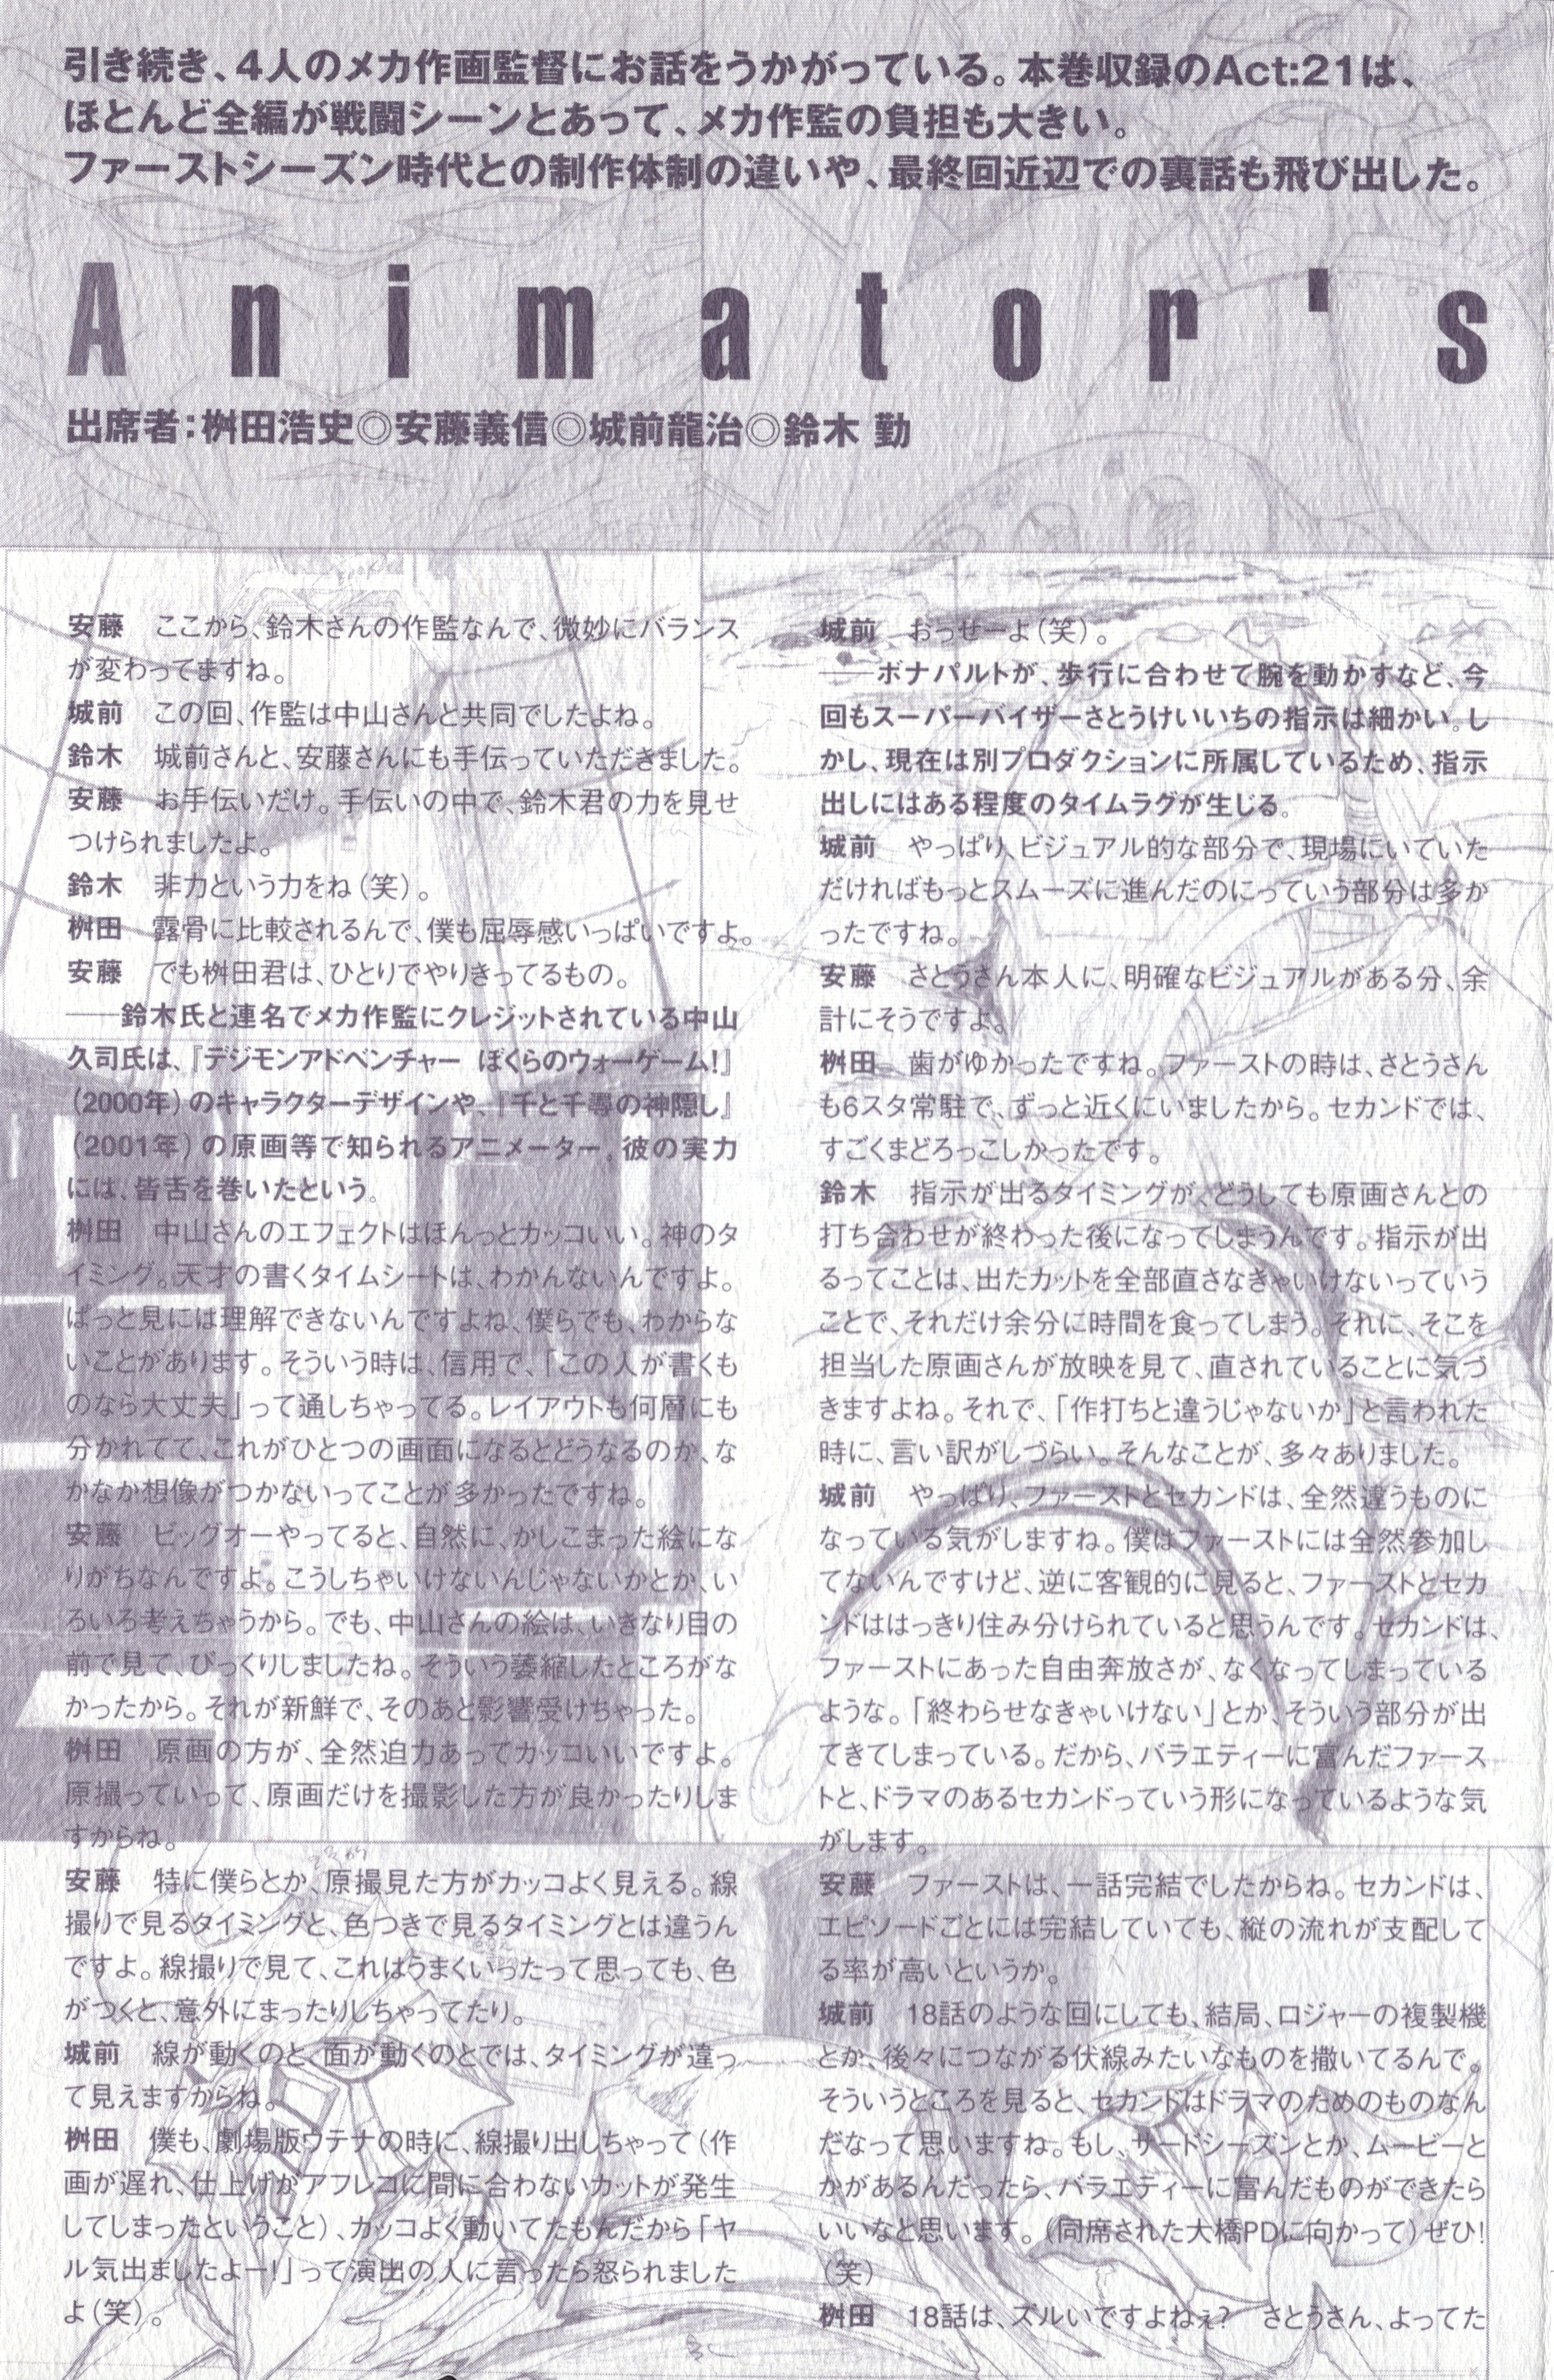 引き続き、4人のメカ作画監督にお話をうかがっている。本巻収録のAct:21は、
ほとんど全編が戦闘シーンとあって、メカ作監の負担も大きい。
ファーストシーズン時代との制作体制の違いや、最終回近辺での裏話も飛び出した。
Animator's
出席者：桝田浩史◎安藤義信◎城前龍治◎鈴木 勤
安藤　ここから、鈴木さんの作監なんで、微妙にバランス
が変わってますね。
城前　この回、作監は中山さんと共同でしたよね。
鈴木　城前さんと、安藤さんにも手伝っていただきました。
安藤　お手伝いだけ。手伝いの中で、鈴木君の力を見せ
つけられましたよ。
鈴木　非力という力をね（笑）。
桝田　露骨に比較されるんで、僕も屈辱感いっぱいですよ。
安藤　でも桝田君は、ひとりでやりきってるもの。
――鈴木氏と連名でメカ作監にクレジットされている中山
久司氏は、『デジモンアドベンチャー　ぼくらのウォーゲーム!』
（2000年）のキャラクターデザインや、『千と千尋の神隠し』
（2001年）の原画等で知られるアニメーター。彼の実力
には、皆舌を巻いたという。
桝田　中山さんのエフェクトはほんっとカッコいい。神のタ
イミング。天才の書くタイムシートは、わかんないんですよ。
ぱっと見には理解できないんですよね、僕らでも、わからな
いことがあります。そういう時は、信用で、「この人が書くも
のなら大丈夫」って通しちゃってる。レイアウトも何層にも
分かれてて、これがひとつの画面になるとどうなるのか、な
かなか想像がつかないってことが多かったですね。
安藤　ビッグオーやってると、自然に、かしこまった絵にな
りがちなんですよ。こうしちゃいけないんじゃないかとか、い
ろいろ考えちゃうから。でも、中山さんの絵は、いきなり目の
前で見て、びっくりしましたね。そういう萎縮したところがな
かったから。それが新鮮で、そのあと影響受けちゃった。
桝田　原画の方が、全然迫力あってカッコいいですよ。
原撮っていって、原画だけを撮影した方が良かったりしま
すからね。
安藤　特に僕らとか、原撮見た方がカッコよく見える。線
撮りで見るタイミングと、色つきで見るタイミングとは違うん
ですよ。線撮りで見て、これはうまくいったって思っても、色
がつくと、意外にまったりしちゃってたり。
城前　線が動くのと、面が動くのとでは、タイミングが違っ
て見えますからね。
桝田　僕も、劇場版ウテナの時に、線撮り出しちゃって（作
画が遅れ、仕上げがアフレコに間に合わないカットが発生
してしまったということ）、カッコよく動いてたもんだから「ヤ
ル気出ましたよー!」って演出の人に言ったら怒られました
よ（笑）。
城前　おっせーよ（笑）。
――ボナパルトが、歩行に合わせて腕を動かすなど、今
回もスーパーバイザーさとうけいいちの指示は細かい。し
かし、現在は別プロダクションに所属しているため、指示
出しにはある程度のタイムラグが生じる。
城前　やっぱり、ビジュアル的な部分で、現場にいていた
だければもっとスムーズに進んだのにっていう部分は多か
ったですね。
安藤　さとうさん本人に、明確なビジュアルがある分、余
計にそうですよ。
桝田　歯がゆかったですね。ファーストの時は、さとうさん
も6スタ常駐で、ずっと近くにいましたから。セカンドでは、
すごくまどろっこしかったです。
鈴木　指示が出るタイミングが、どうしても原画さんとの
打ち合わせが終わった後になってしまうんです。指示が出
るってことは、出たカットを全部直さなきゃいけないっていう
ことで、それだけ余分に時間を食ってしまう。それに、そこを
担当した原画さんが放映を見て、直されていることに気づ
きますよね。それで、「作打ちと違うじゃないか」と言われた
時に、言い訳がしづらい。そんなことが、多々ありました。
城前　やっぱり、ファーストとセカンドは、全然違うものに
なっている気がしますね。僕はファーストには全然参加し
てないんですけど、逆に客観的に見ると、ファーストとセカ
ンドははっきり住み分けられていると思うんです。セカンドは、
ファーストにあった自由奔放さが、なくなってしまっている
ような。「終わらせなきゃいけない」とか、そういう部分が出
てきてしまっている。だから、バラエティーに富んだファース
トと、ドラマのあるセカンドっていう形になっているような気
がします。
安藤　ファーストは、一話完結でしたからね。セカンドは、
エピソードごとには完結していても、縦の流れが支配して
る率が高いというか。
城前　18話のような回にしても、結局、ロジャーの複製機
とか、後々につながる伏線みたいなものを撒いてるんで。
そういうところを見ると、セカンドはドラマのためのものなん
だなって思いますね。もし、サードシーズンとか、ムービーと
かがあるんだったら、バラエティーに富んだものができたら
いいなと思います。（同席された大橋PDに向かって）ぜひ!
（笑）
桝田　18話は、ズルいですよねぇ?　さとうさん、よってた